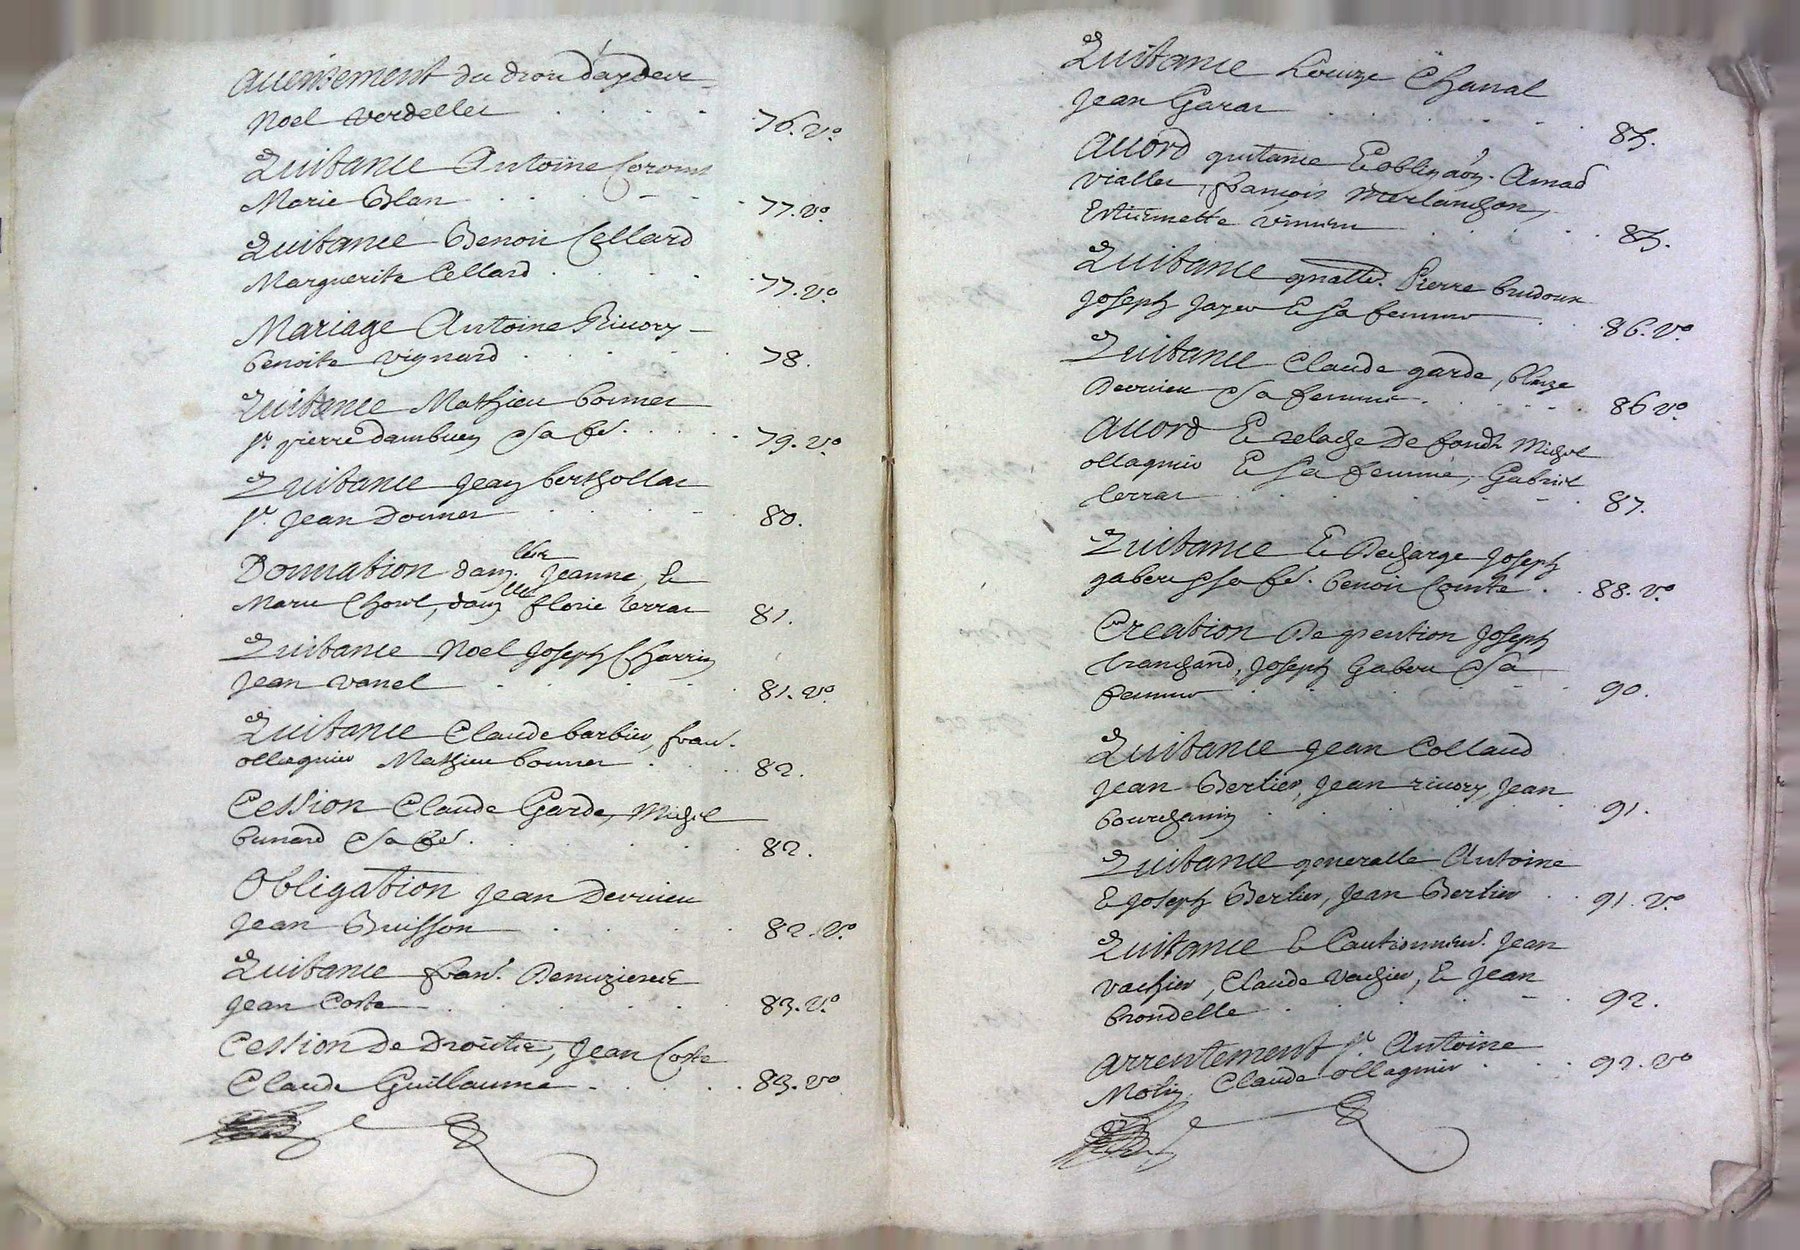 du
Noel Verdellet 76. v°
Quitance Antoine
Marie Blan 77. v°
Quitance Benoit Cellard
Marguerite Cellard 77. v°
Mariage Antoine Rivory
benoite vignard 78.
Quitance Mathieu bonnet
sr. pierre sa fe. 79. v°
Quitance Jean berthollat
sr. Jean Donnet 80.
Donnation Jeanne, Et
Marie florie terrat 81.
Quitance Noel Joseph Charrin
Jean vanel 81. v°
Quitance Claude barbier, fran.
ollagnier Mathieu bonnet 82.
Cession Claude Garde, Michel
sa fe. 82.
Obligation Jean Dervieu
Jean Buisson 82. v°
Quitance fran.
Jean Coste 83. v°
Cession De Droits, Jean Coste
Claude Guillaume 83. v°
Quitance Louize Chanal
Jean Garat 85.
Accord quitance Et obligaon. Amad
viallet, françois Merlanchon,
Estiennette 85.
Quitance Pierre
Joseph Et sa femme 86. v°
Quitance Claude garde, blaize
Dervieu Et sa femme 86 v°
Accord Et relache De fonds Michel
ollagnier Et sa femme, Gabriel
terrat 87.
Quitance Et Decharge Joseph
gabert Et sa fe. benoit Comte 88. v°
Creation De pention Joseph
branchard, Joseph Gabert Et sa
femme 90.
Quitance Jean Collaud
Jean Berlier, Jean rivory, Jean
bourchanin 91.
Quitance generalle Antoine
Et Joseph Berlier, Jean Berlier 91. v°
Quitance Et Cautionnemt. Jean
vachier, Claude vachier, Et Jean
brondelle 92.
Arrentement sr. Antoine
Molin, Claude ollagnier 92. v°